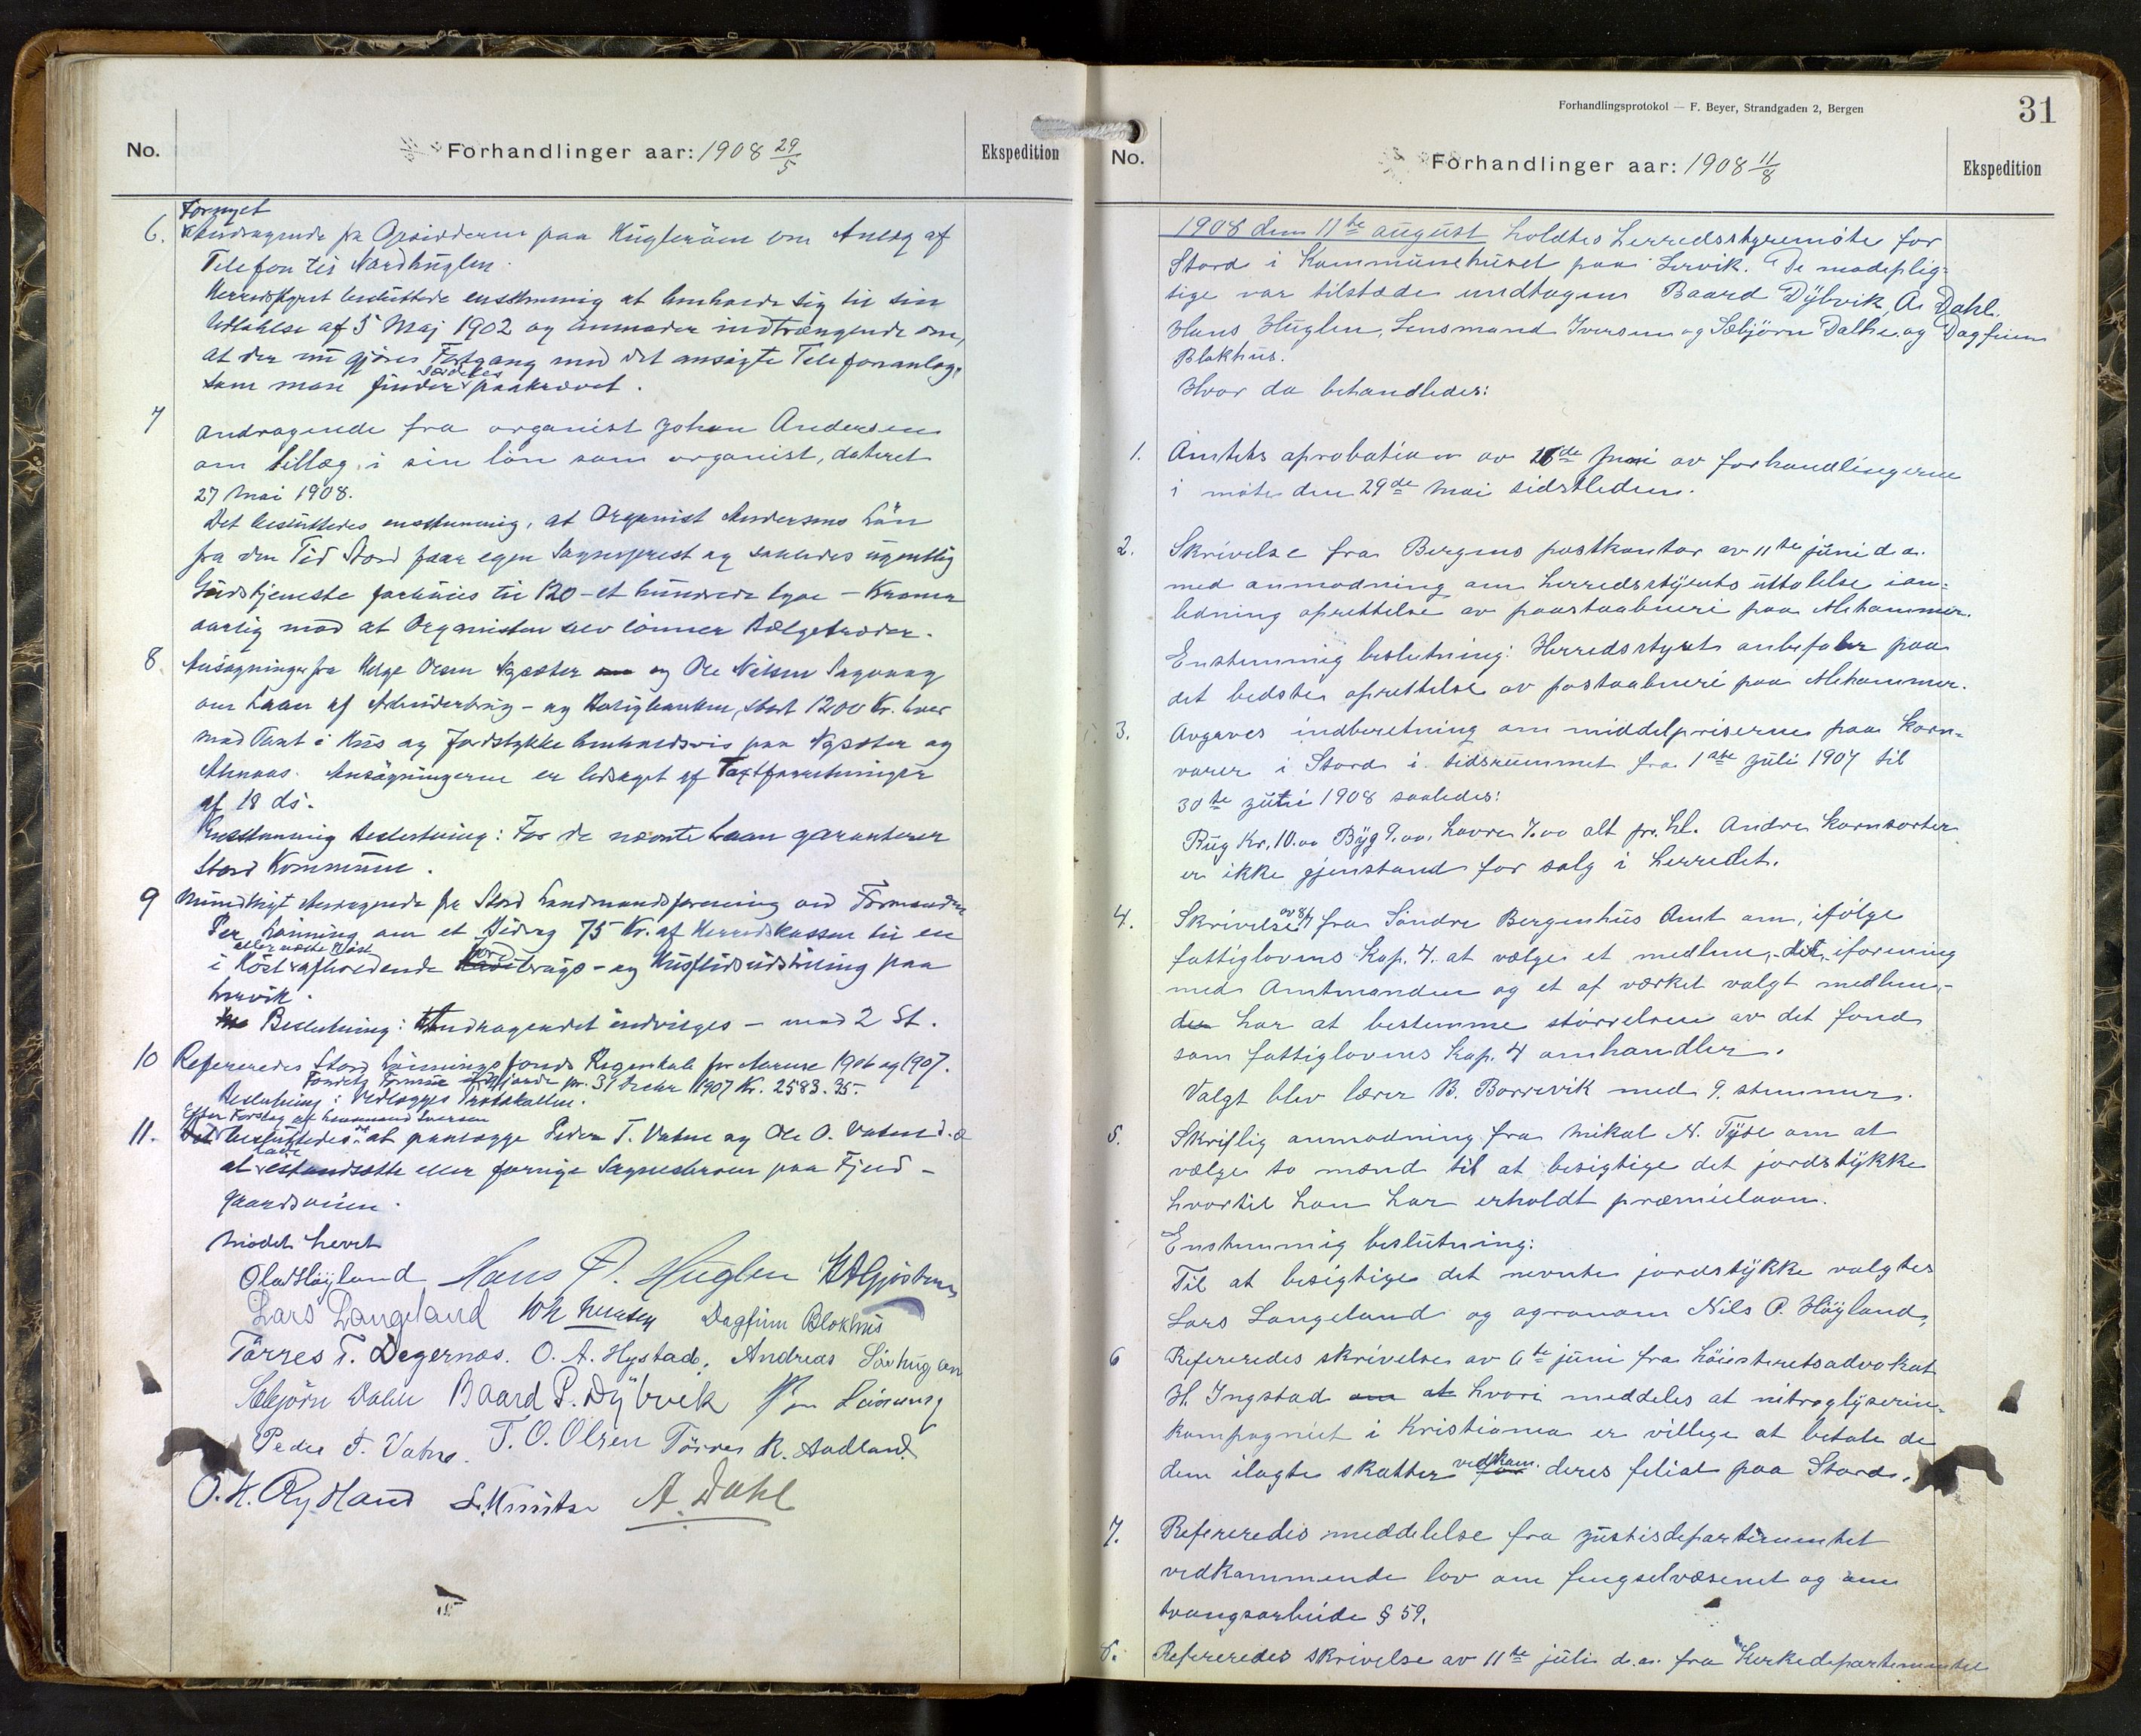 No.
Forhandlinger aar: 1908 29/5
Ekspedition
Fornyet
6. Andragende fra Opsidderne paa Huglenöen om Anlæg af
Telefon til Nordhuglen.
Herredsstyret besluttede enstemmig at henholde sig til sin
Udtalelse af 5 Maj 1902 og anmoder indtrængende om,
at der nu gjöres Fortgang med det ansögte Telefonanlæg,
som man finder særdeles paakrævet.
7 Andragende fra organist Johan Andersen
om tillæg i sin lön som organist, dateret
27 mai 1908.
Det besluttedes enstemmig, at Organist Andersens Lön
fra den Tid Stord faar egen Sogneprest og saaledes ugentlig
Gudstjeneste forhöies til 120 - et hundrede tyve - Kroner
aarlig mod at Organisten selv lönner Bælgetræder.
8 Ansögninger fra Helge Olsen Nysæter og Ole Nilsen Sagvaag
om Laan af Arbeiderbrug- og Boligbanken, stort 1200 Kr. hver
mod Pant i Hus og Jordstykke henholdsvis paa Nysæter og
Almaas. Ansögningerne er ledsaget af Taxtforretninger
af 18 ds.
Enstemmig Beslutning: For de nævnte Laan garanterer
Stord Kommune.
9 Mundtligt Andragende fra Stord Landmandsforening ved Formanden
Per Lönning om et Bidrag 75 Kr. af Herredskassen til en
eller næste Höst
i Höst afholdende Jordbrugs- og Husflidsudstilling paa
Lervik.
Beslutning: Andragendet indvilges - mod 2 St.
10 Refereredes Stord Lönningsfonds Regnskab for Aarene 1906 og 1907.
Fondets Formue udgjorde pr. 31 Decbr 1907 Kr. 2583.35.
Beslutning: Vedlægges Protokollen.
Efter Forslag af Lensmand Iversen
11. besluttedes det at paalægge Peder T. Vatne og Ole O. Vatne d.æ
at lade istandsætte eller fornye Sagnedroen paa Fjeld-
gaardsveien.
Mödet hevet
Ola Höyland Hans P. Huglen
Lars Langeland Joh Iversen Dagfinn Blokhus
Törres T. Degernæs. O. A. Hystad. Andreas Sörhuglen
Sæbjörn Dalen Baard P. Dybvik Per Lönning
Peder T. Vatne. T. O. Olsen Törres K. Aadland.
O. K. Rydland L. Knutsen A. Dahl
Forhandlingsprotokol — F. Beyer, Strandgaden 2, Bergen
31
No.
Forhandlinger aar: 1908 11/8
Ekspedition
1908 den 11te august holdtes herredsstyremöte for
Stord i Kommunehuset paa Lervik. De mödeplig-
tige var tilstæde undtagen Baard Dybvik, A. Dahl.
Hans Huglen, Lensmand Iversen og Sæbjörn Dalhe. og Dagfinn
Blokhus.
Hvor da behandledes:
1. Amtets aprobation av 16de juni av forhandlingerne
i möte den 29de mai sidstleden.
2. Skrivelse fra Bergens postkontor av 11te juni d.a.
med anmodning om herredsstyrets uttalelse ian-
ledning oprettelse av poståabneri paa Alehammer.
Enstemmig beslutning: Herredsstyret anbefaler paa
det bedste oprettelse av poståabneri paa Alehammer.
3. Avgaves indberetning om middelpriserne paa korn-
varer i Stord i tidsrummet fra 1ste juli 1907 til
30te juni 1908 saaledes:
Rug Kr. 10.00 Byg 9.00, havre 7.00 alt pr. hl. Andre kornsorter
er ikke gjenstand for salg i herredet.
4. Skrivelse av 8/7 fra Söndre Bergenhus Amt om, ifölge
fattiglovens Kap. 4. at vælge et medlem, det iforening
med Amtmanden og et af værket valgt medlem,-
har at bestemme störrelsen av det fond
som fattiglovens Kap. 4 omhandler.
Valgt blev lærer B. Borrevik med 9. stemmer.
5. Skriftlig anmodning fra Mikal N. Tyse om at
vælge to mænd til at besigtige det jordstykke
hvortil han har erholdt præmielaan.
Enstemmig beslutning:
Til at besigtige det nevnte jordstykke valgtes
Lars Langeland og agronom Nils P. Höyland,
6 Refereredes skrivelse av 6te juni fra höiesteretsadvokat
H. Ingstad om at hvori meddeles at nitroglyserin-
kompagniet i Kristiania er villege at betale de
dem ilagte skatter vedkom. deres filial paa Stord.
7. Refereredes meddelelse fra justisdepartementet
vedkommende lov om fengselvæsenet og om
tvangsarbeide § 59.
8. Refereredes skrivelse av 11te juli d.a. fra Kerkedepartementet